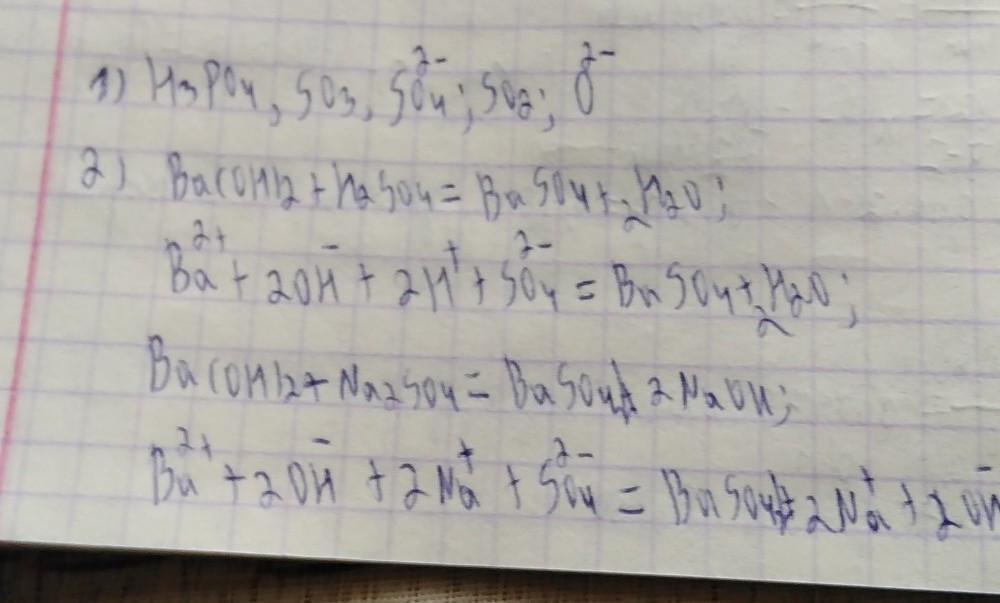 1) H3PO4, SO3, SO4²⁻; SO2; O²⁻
2) Ba(OH)2 + H2SO4 = BaSO4 + 2H2O;
Ba²⁺ + 2OH⁻ + 2H⁺ + SO4²⁻ = BaSO4 + 2H2O;
Ba(OH)2 + Na2SO4 = BaSO4↓ + 2NaOH;
Ba²⁺ + 2OH⁻ + 2Na⁺ + SO4²⁻ = BaSO4↓ + 2Na⁺ + 2OH⁻